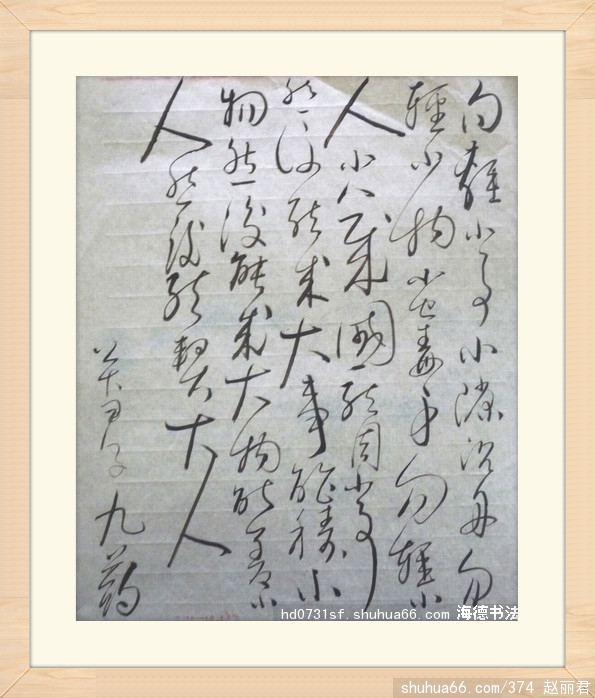 勿輕小事小隙沉舟勿
輕小物小虫毒身勿輕小
人小人賊國能周小事
然後能成大事能積小
物然後能成大物能善小
人然後能契大人
关尹子九药
hd0731sf.shuhua66.com 海德书法
shuhua66.com/374 赵丽君